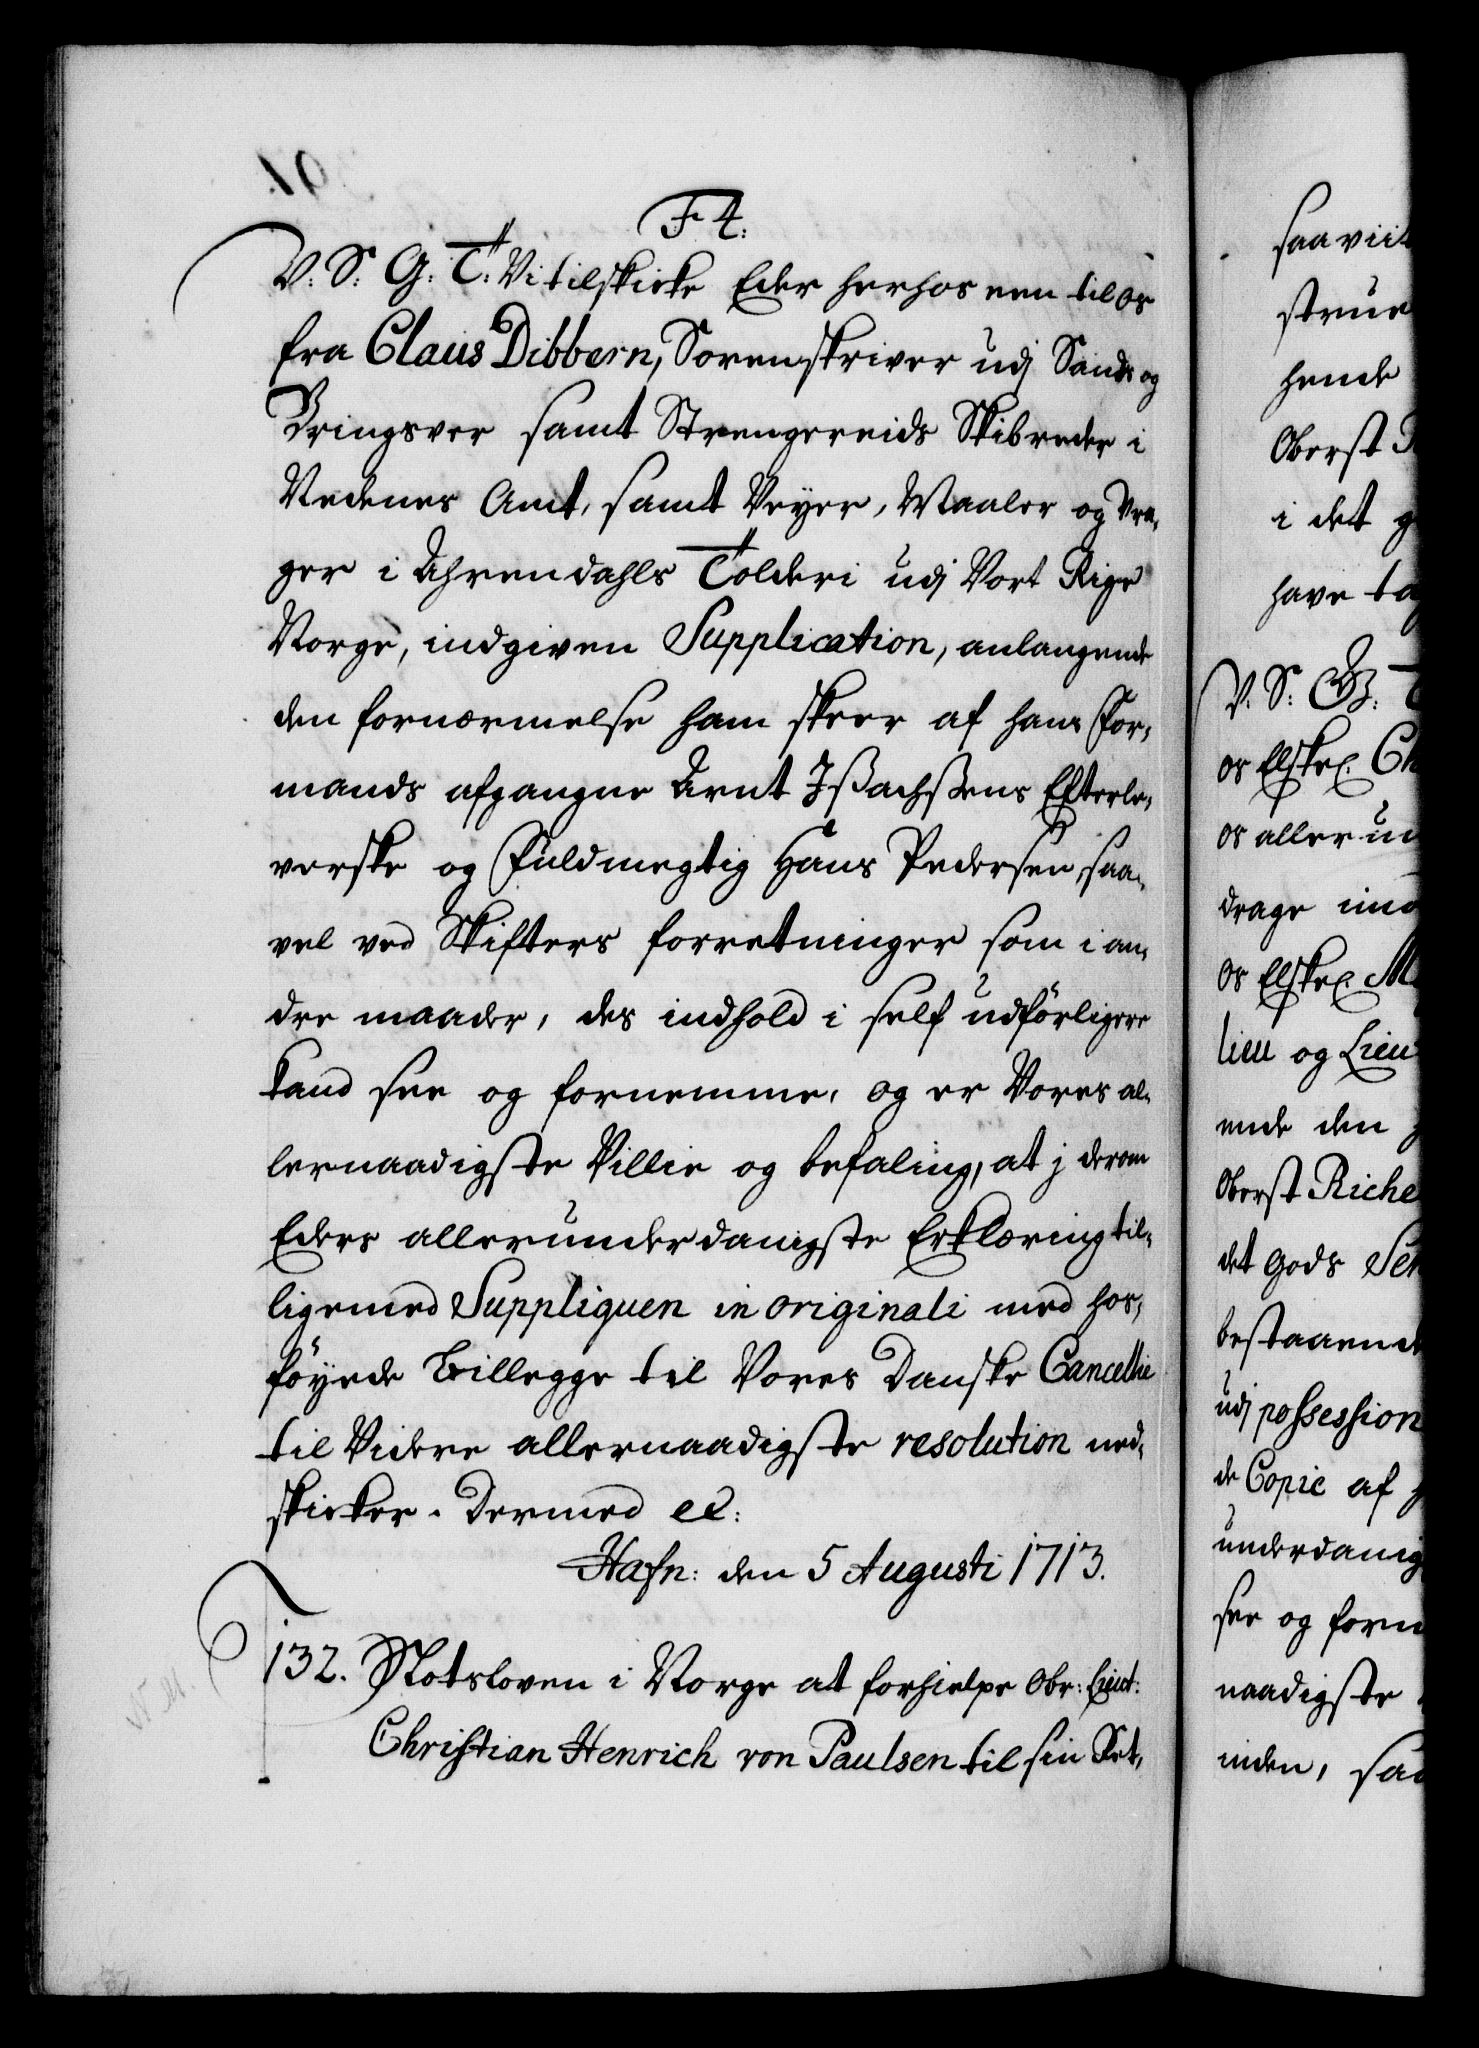 F 4.
V: S: G: T: Vi tilskicke Eder herhos een til os
fra Claus Dibbern, Sorenskriver udj Sands og
Dringsver samt Strengereids Skibreder i
Nedenes Amt, samt Veyer, Maaler og Vra-
ger i Ahrendahls Tolderi udj Vort Rige
Norge, indgiven Supplication, anlangende
den fornærmelse ham skeer af hans For-
mands afgangne Arnt Jsachsens Efterle-
verske og Fuldmegtig Hans Pedersen, saa-
vel ved Skifters forretninger som i an-
dre maader, des indhold i self udförligere
kand see og fornemme, og er Vores al-
lernaadigste Villie og befaling, at j derom
Eders allerunderdanigste Erklæring til-
ligemed Suppliquen in originali med hos-
föyede Billegge til Vores Danske Cancellie
til Videre allernaadigste resolution ned-
skicker. Dermed etc:
Hafn: den 5 Augusti 1713.
132. Slotsloven i Norge at forhielpe Obr: Lieut:
Christian Henrich von Paulsen til sin Ret,
saa viit
hende
Oberst
i det
have
V. S: G:
os Elskel.
os aller un
drage imo
os Elskel.
lieu og Lieu
ende den
Oberst Riche
det Gods
bestaaende
udj possession
de Copie af
underdanig
see og forn
naadigste
inden, saa